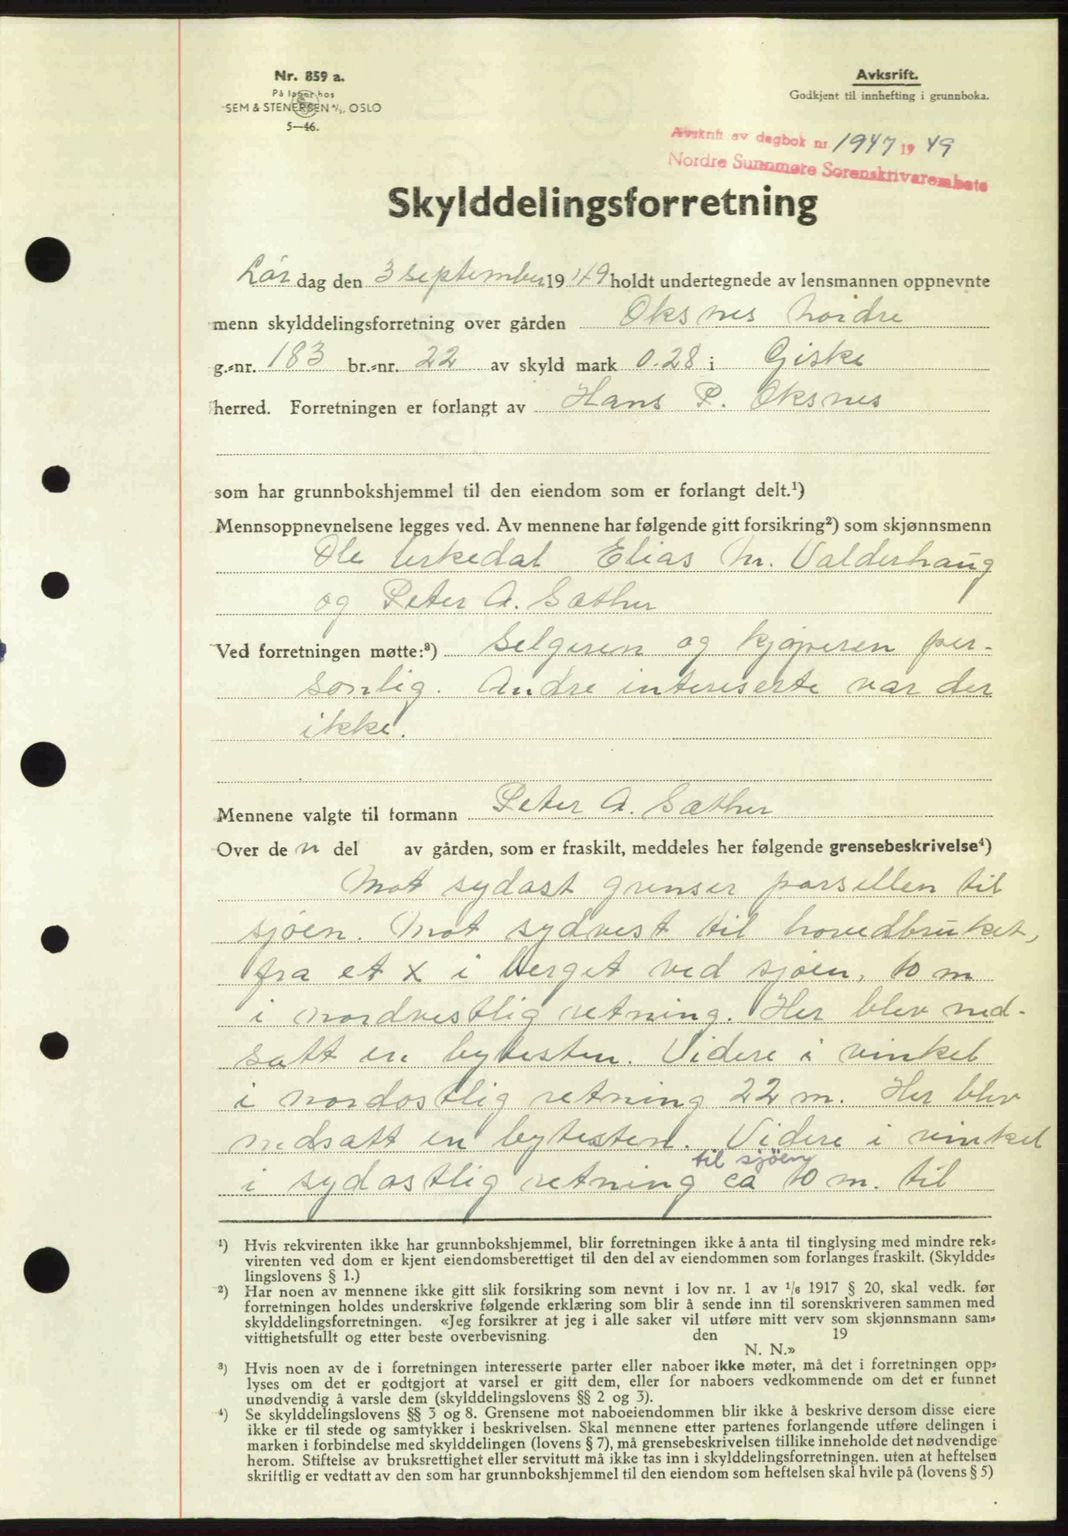 Nr. 859 a.
På lager hos
SEM & STENERSEN A/S, OSLO
5—46.
Avksrift.
Godkjent til innhefting i grunnboka.
Avskrift av dagbok nr 1947 1949
Nordre Sunnmøre Sorenskrivarembete
Skylddelingsforretning
Lør dag den 3 september 1949 holdt undertegnede av lensmannen oppnevnte
menn skylddelingsforretning over gården Oksnes nordre
g.-nr. 183 br.-nr. 22 av skyld mark 0.28 i Giske
herred. Forretningen er forlangt av Hans P. Oksnes
som har grunnbokshjemmel til den eiendom som er forlangt delt.¹)
Mennsoppnevnelsene legges ved. Av mennene har følgende gitt forsikring²) som skjønnsmenn
Ole Urkedal Elias M. Valderhaug
og Peter A. Sæther
Ved forretningen møtte:³) Selgeren og kjøperen per-
sonlig. Andre intereserte var der
ikke.
Mennene valgte til formann Peter A. Sæther
Over de n del av gården, som er fraskilt, meddeles her følgende grensebeskrivelse⁴)
Mot sydøst grenser parsellen til
sjøen. Mot sydvest til hovedbruket,
fra et x i berget ved sjøen, 10 m
i nordvestlig retning. Her blev ned-
satt en bytesten. Videre i vinkel
i nordøstlig retning 22 m. Her blev
nedsatt en bytesten. Videre i vinkel
til sjøen
i sydøstlig retning ca 10 m. til
¹) Hvis rekvirenten ikke har grunnbokshjemmel, blir forretningen ikke å anta til tinglysing med mindre rek-
virenten ved dom er kjent eiendomsberettiget til den del av eiendommen som forlanges fraskilt. (Skyldde-
lingslovens § 1.)
²) Har noen av mennene ikke gitt slik forsikring som nevnt i lov nr. 1 av 1/6 1917 § 20, skal vedk. før
forretningen holdes underskrive følgende erklæring som blir å sende inn til sorenskriveren sammen med
skylddelingsforretningen. «Jeg forsikrer at jeg i alle saker vil utføre mitt verv som skjønnsmann sam-
vittighetsfullt og etter beste overbevisning. den 19
N. N.»
³) Hvis noen av de i forretningen interesserte parter eller naboer ikke møter, må det i forretningen opp-
lyses om det er godtgjort at varsel er gitt dem, eller for naboers vedkommende om det er funnet
unødvendig å varsle dem (skylddelingslovens §§ 2 og 3).
⁴) Se skylddelingslovens §§ 3 og 8. Grensene mot naboeiendommen blir ikke å beskrive dersom disse eiere
ikke er til stede og samtykker i beskrivelsen. Skal mennene etter partenes forlangende utføre delingen i
marken i forbindelse med skylddelingen (lovens § 7), må grensebeskrivelsen tillike inneholde det nødvendige
herom. Stiftelse av bruksrettighet eller servitutt må ikke tas inn i skylddelingsforretningen. uten at heftelsen
skriftlig er vedtatt av den som har grunnbokshjemmel til den eiendom som heftelsen skal hvile på (lovens § 5)